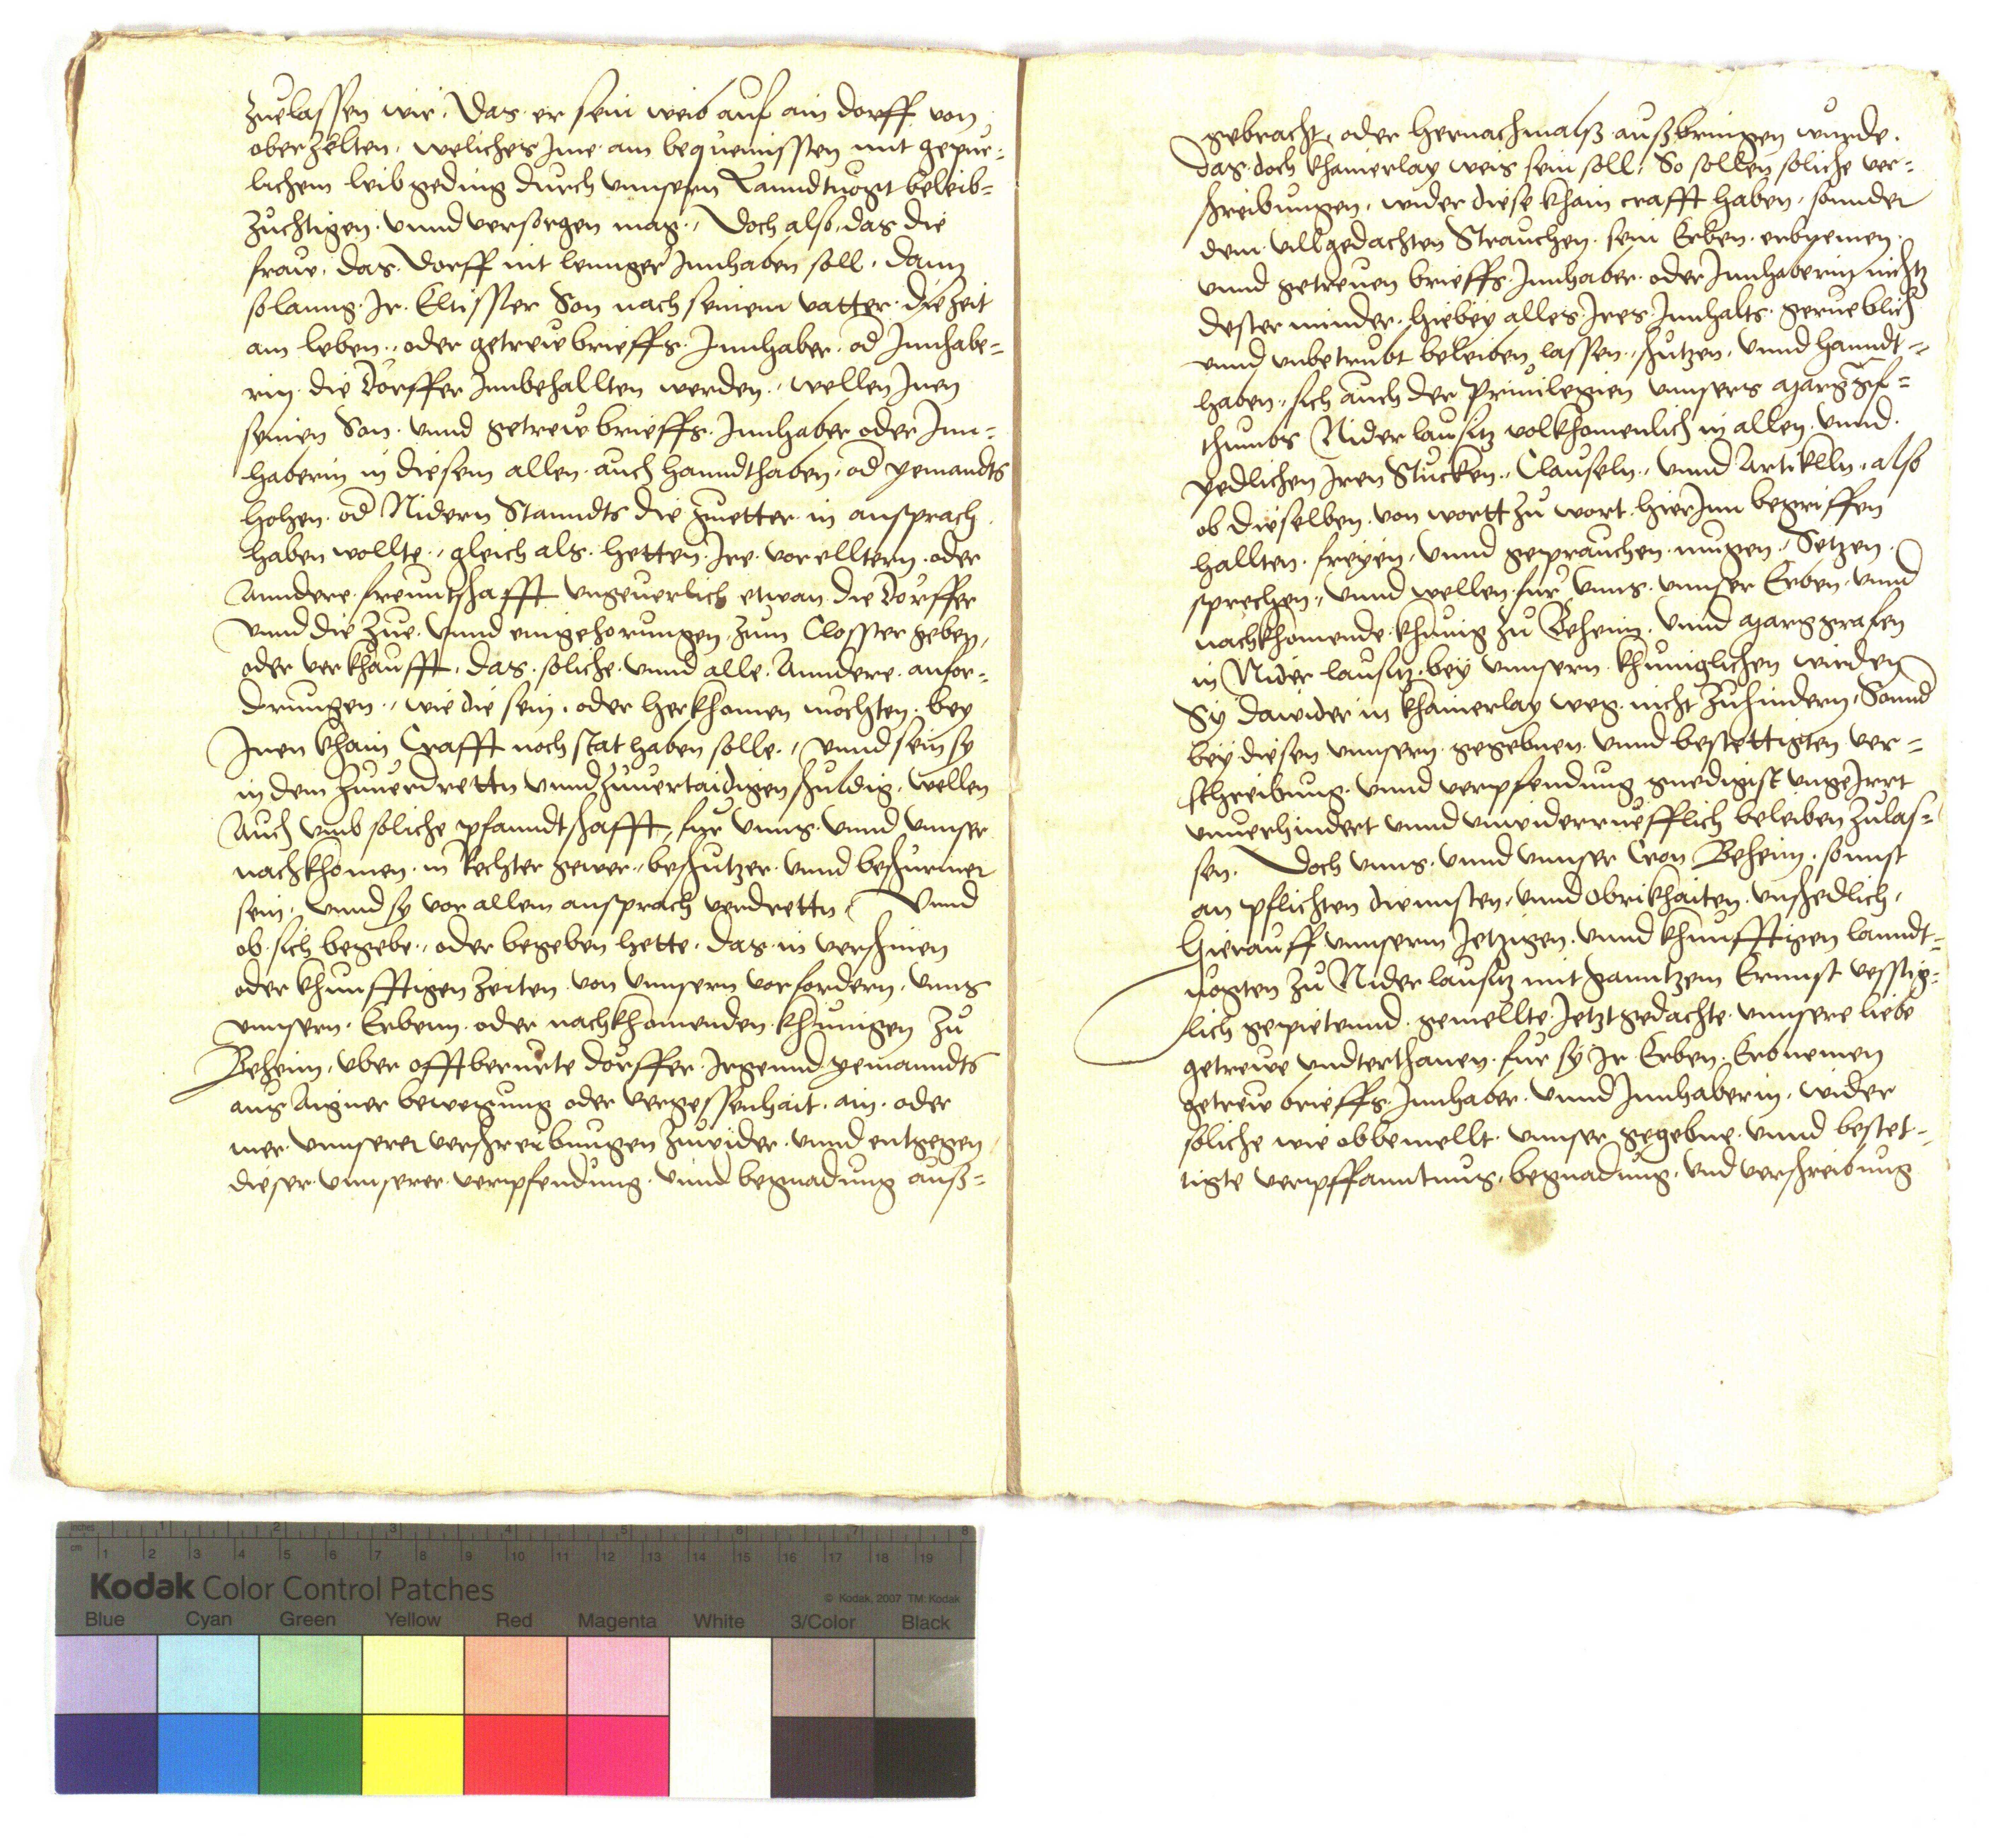 zuelassen wir, Das er sein weib auf ain dorff von
oberzelten, weliches Jme am bequemissten mit gepur-
lichem leibgeding durch vnnsern Lanndtuogt beleib-
zuchtigen vnnd versorgen mag, Doch also, das die
fraw, das Dorff nit lennger Jnnhaben soll, dann
solanng Jr Elltister Son nach seinem vatter die zeit
am leben, oder getrew brieffs Jnnhaber od Jnnhabe-
rin die Dorffer Jnnbehallten werden, wellen Jnen
seinen Son vnnd getrew brieffs Jnnhaber oder Jnn-
haberin in diesem allen auch hanndthaben, od yemandts
hohen od Nidern Stanndts die zuetter in ansprach
haben wollte, gleich als hetten Jre vorelltern oder
Anndere freuntschafft vngeuerlich etwan die Dorffer
vnnd die zue vnnd eingehorungen, zum Closster geben,
oder verkhaufft, das soliche vnnd alle Anndere anfor-
drungen, wie die sein, oder herkhomen mochten, bey
Jnen khain Crafft noch stat haben solle, vnnd sein sy
in dem zuuerdrettn vnnd zuuertaidigen schuldig, wellen
Auch vmb soliche pfanndtschafft, fur vnns vnnd vnnser
nachkhomen in Rechter gewer, beschutzer vnnd beschurmer
sein, vnnd sy vor allem ansprach verdrettn, Vnnd
ob sich begebe, oder begeben hette, das in verschinen
oder khunfftigen zeiten von vnnsern vorfordern, vnns
vnnsern Erbenn oder nachkhomenden khunigen zu
Beheim, vber offtberurte dorffer Jrgennd yemanndts
aus Aigner bewegung oder vergessenhait, ain oder
mer vnnserer verschreibungen zuwider vnnd entgegen
dieser vnnserer verpfendung vnnd begnadung auß-
gebracht, oder hernachmalß außbringen wurde.
das doch khainerlay weis sein soll, So sollen soliche ver-
schreibungen, wider diese khain crafft haben, sonnder
dem villgedachten Strauchen sein Erben erbnemen
vnnd getreuen brieffs Jnnhaber oder Jnnhaberin nichtz
dester minder, hiebey alles Jres Jnnhalts gerueblich
vnnd vnbetrubt beleiben lassen, schutzen, vnnd hanndt-
haben, sich auch der Priuilegien vnnsers Marggf-
thumbs Niderlausitz volkhomenlich in allen vnnd
yedlichen Jren Stucken, Clauseln, vnnd Artikelln, also
ob dieselben von wortt zu wort hierJnn begriffen
hallten freyen, vnnd geprauchen mugen, Setzen
sprechen, vnnd wellen fur vnns vnnser Erben vnnd
nachkhomende khunig zu Beheim, vnnd Marggrafen
in Niderlausitz, bey vnnsern khuniglichen wirden
Sy dawider in khainerlay weg nicht zuhindern, Sonnd
bey diesen vnnsern gegebnen vnnd bestettigten ver-
schreibung vnnd verpfendung gnedigist vngeJrrt
vnuerhindert vnnd vnwiderruefflich beleiben zulas-
sen. Doch vnns vnnd vnnser Cron Beheim, sonnst
an pflichten diennsten, vnnd Obrikhaiten vnschedlich,
hierauff vnnserm Jetzigen vnnd khunfftigen lanndt-
uogten zu Niderlausitz mit ganntzem Ernnst vesstig-
lich gepietennd gemellte Jetztgedachte vnnsere liebe
getrewe vndterthanen fur sy Jr Erben Erbnemen
getrew brieffs Jnnhaber vnnd Jnnhaberin, wider
soliche wie obbemellt vnnser gegebne vnnd bestet-
tigte verpffanntung, begnadung, vnd verschreibung
inches 1 2 3 4 5 6 7 8
cm 1 2 3 4 5 6 7 8 9 10 11 12 13 14 15 16 17 18 19
Kodak Color Control Patches © Kodak, 2007 TM: Kodak
Blue Cyan Green Yellow Red Magenta White 3/Color Black